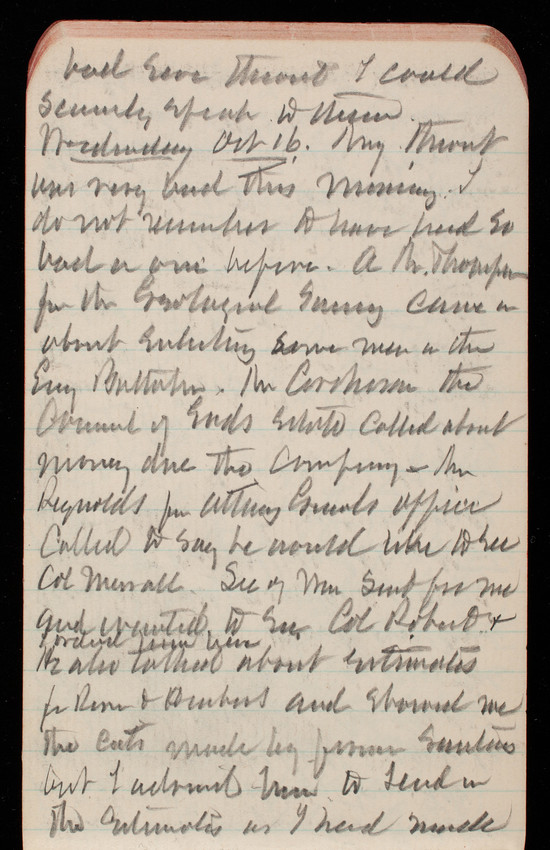 bad sore throat I could
scarcely speak to them.
Wednesday Oct 16. My throat
was very bad this morning. I
do not remember to have had so
bad a one before. A Mr. Thompson
for the Geological Survey came in
about enlisting some men in the
Eng Battalion. Mr the
of Eads Estate called about
money due the Company - Mr
Reynolds for Attorney Generals office
called to say he would like to see
Col Merrall. Sec of War sent for me
and wanted to see Col Roberts &
ordered him here
He also talked about estimates
for River & Harbors and showed me
the cuts made by former
but I advised him to send in
the Estimates as I had made